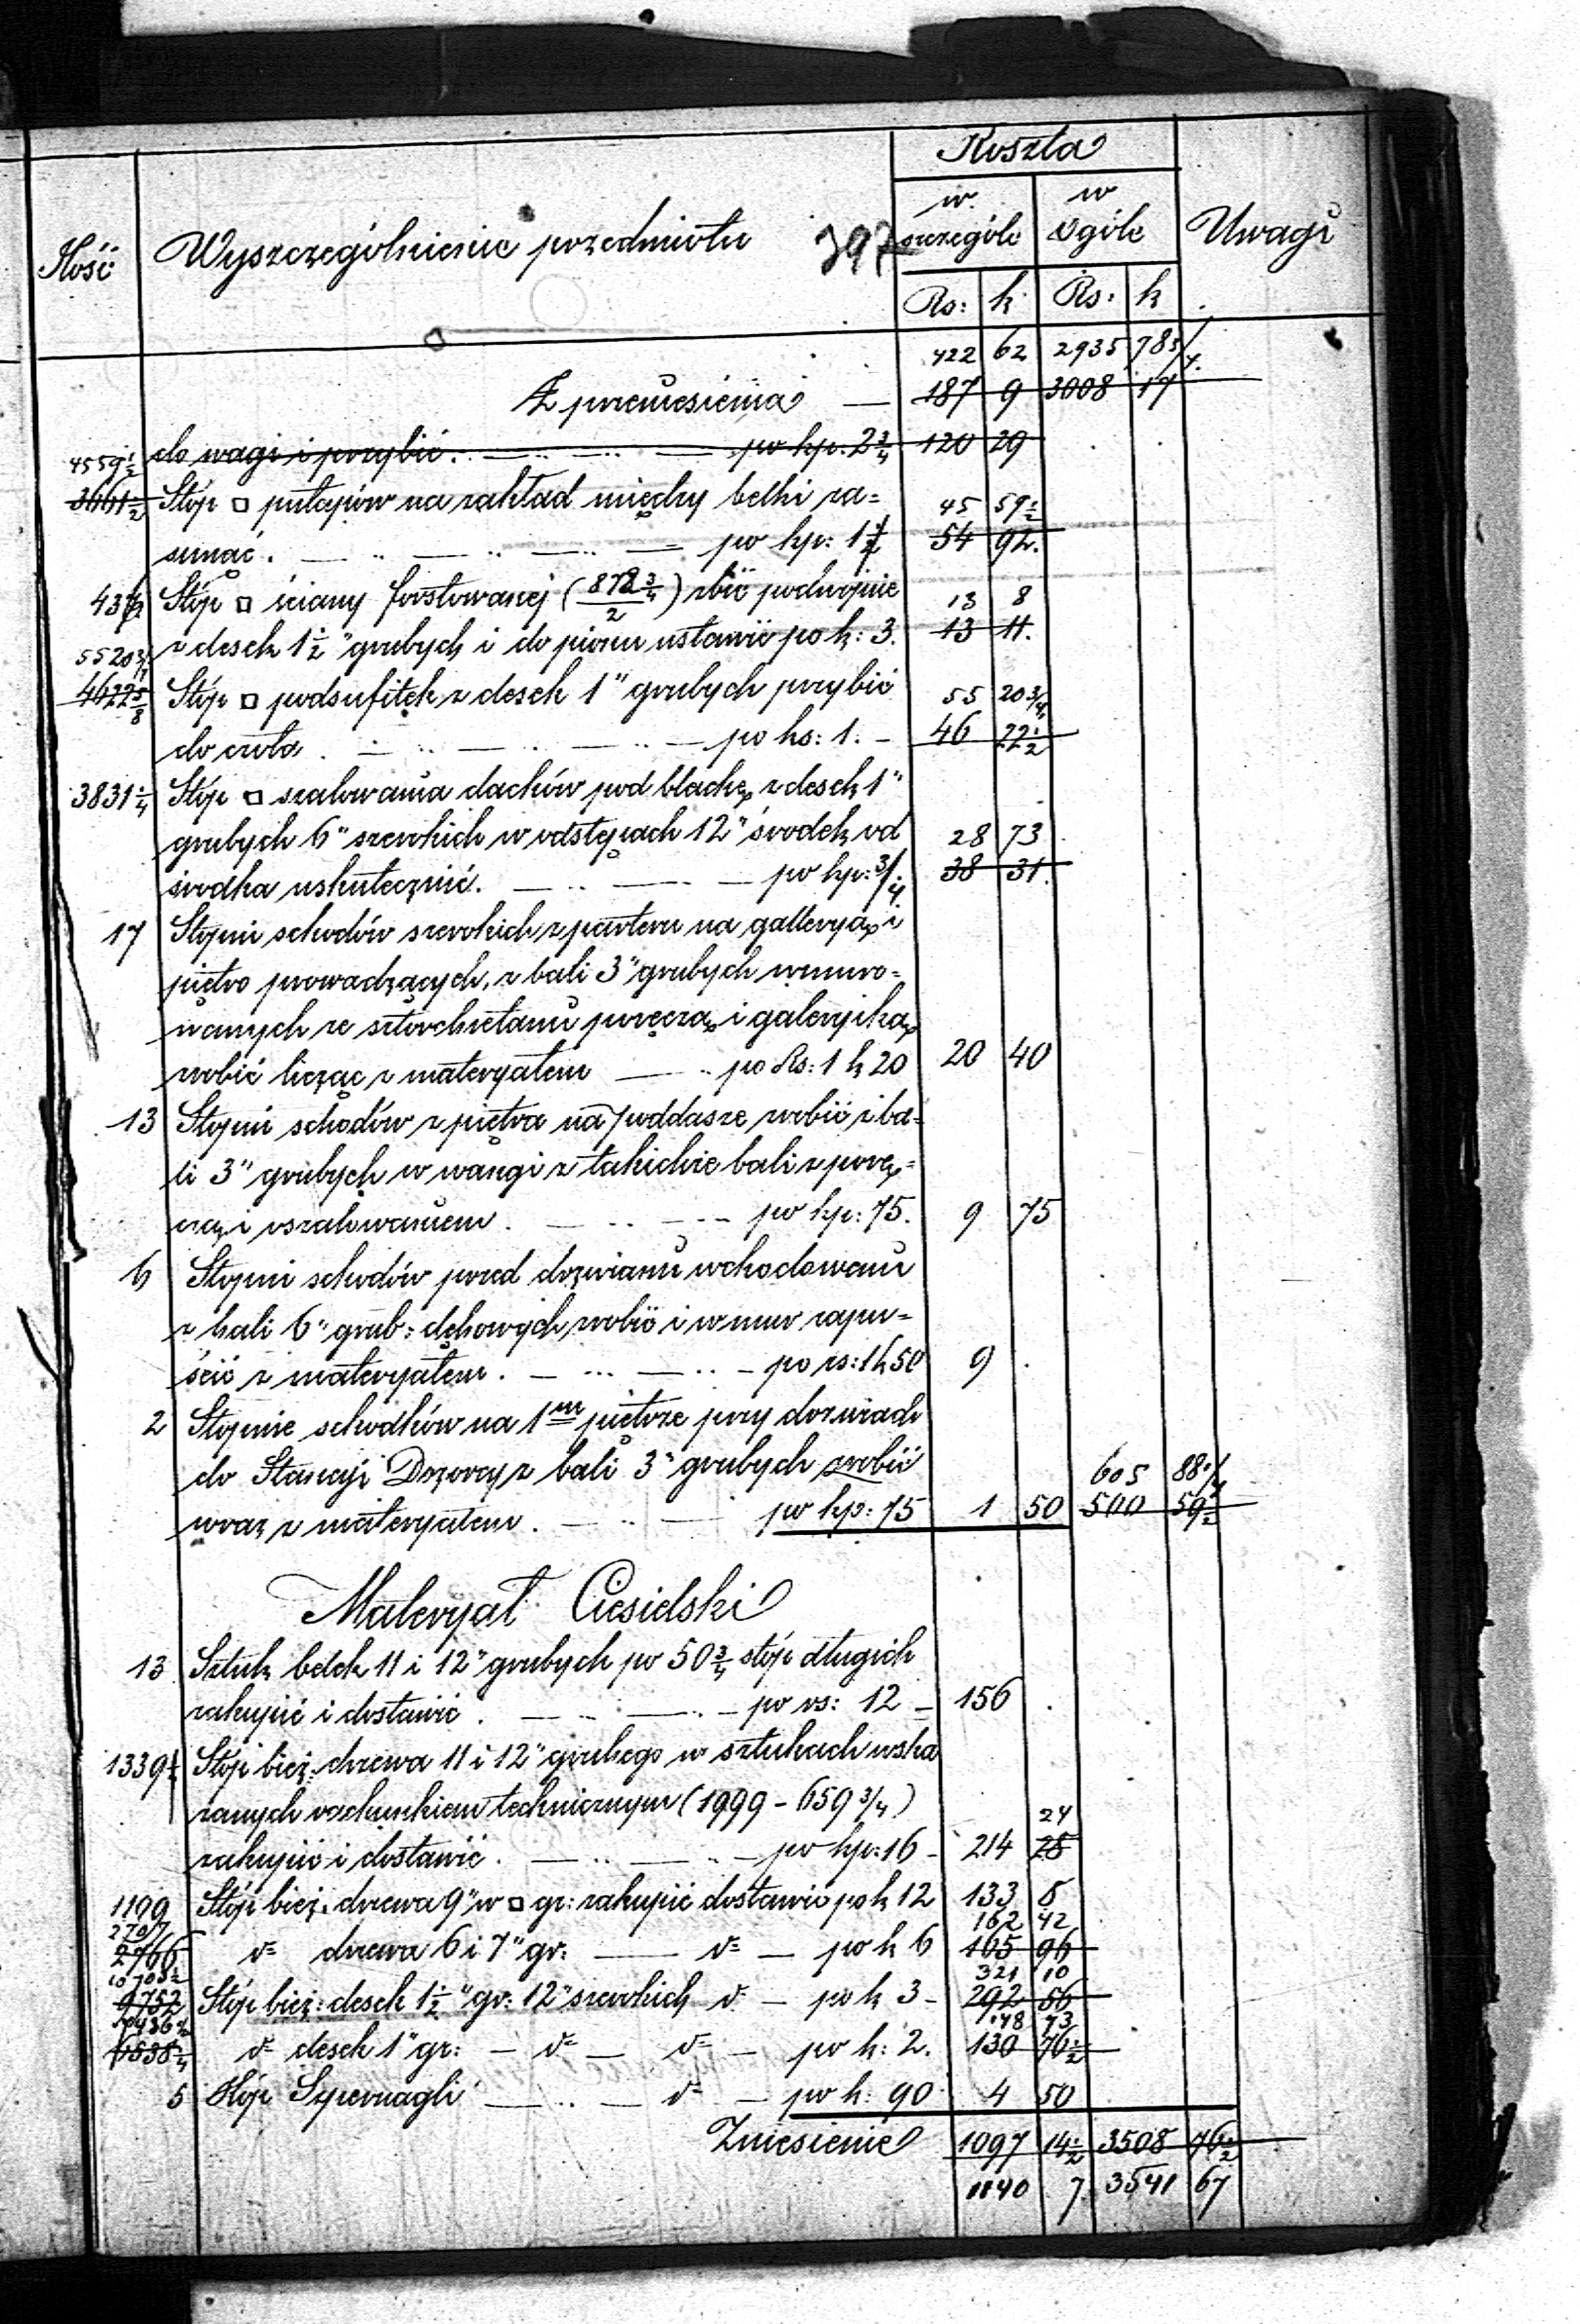 Koszta
Ilość Wyszczególnienie przedmiotu 397 w szczególe w ogóle Uwagi
Rs: k Rs: k
422 62 2935 78 3/4
Z przeniesienia — 187 9 3008 17
do wagi i przybić. — po kp. 2 3/4 120 29
4559 1/2
3661 1/2 Stóp □ pułapów na zakład między belki za= 45 59 1/2
sunąć. — po kp: 1 1/2 54 92.
436 Stóp □ ściany forstowanej (872 3/4 / 2) zbić podwójnie 13 8
z desek 1 1/2" grubych i do pionu ustawić po k: 3. 13 11.
5520 3/4
4622 5/8 Stóp □ podsufitek z desek 1" grubych przybić 55 20 3/4
do czoła . — po ks: 1. — 46 22 1/2
3831 1/4 Stóp □ szalowania dachów pod blachę z desek 1"
grubych 6" szerokich w odstępach 12" środek od 28 73
środka uskutecznić. — po kp: 3/4 38 31.
17 Stopni schodów szerokich z parteru na galleryą i
piętro prowadzących, z bali 3" grubych wmuro=
wanych ze sztorchetami poręczą i galeryjką
zrobić licząc z materyałem — po Rs: 1 k 20 20 40
13 Stopni schodów z piętra na poddasze zrobić z ba=
li 3" grubych w wangi z takichże bali z porę=
czą i oszalowaniem . — po kp: 75. 9 75
6 Stopni schodów przed drzwiami wchodowemi
z bali 6" grub: dębowych zrobić i w mur zapu=
ścić z materyałem . — po rs: 1 k 50 9 .
2 Stopnie schodków na 1m piętrze przy drzwiach
do Stancyi Dozorcy z bali 3" grubych zrobić 605 88 1/4
wraz z materyałem . — po kp: 75 1 50 500 59 1/2
Materyał Ciesielski
13 Sztuk belek 11 i 12" grubych po 50 3/4 stóp długich
zakupić i dostawić . — po rs: 12 — 156 .
1339 1/4 Stóp bież: drzewa 11 i 12" grubego w sztukach wska
zanych rachunkiem technicznym (1999 - 659 3/4) 24
zakupić i dostawić . — po kp: 16 — 214 28
1109 Stóp bież. drzewa 9" w □ gr: zakupić dostawić po k 12 133 8
2707 162 42
2766 d= drzewa 6 i 7" gr: — d= — po k 6 165 96
10703 1/2 321 10
9752 Stóp bież: desek 1 1/2" gr: 12" szerokich d. — po k 3 — 292 56
148 73
6538 1/4 d= desek 1" gr: — d= — d= — po k: 2. 130 76 1/2
5 Kóp Szpernagli — d= — po k: 90 4 50
Zniesienie 1097 14 1/2 3508 76 1/2
1140 7. 3541 67